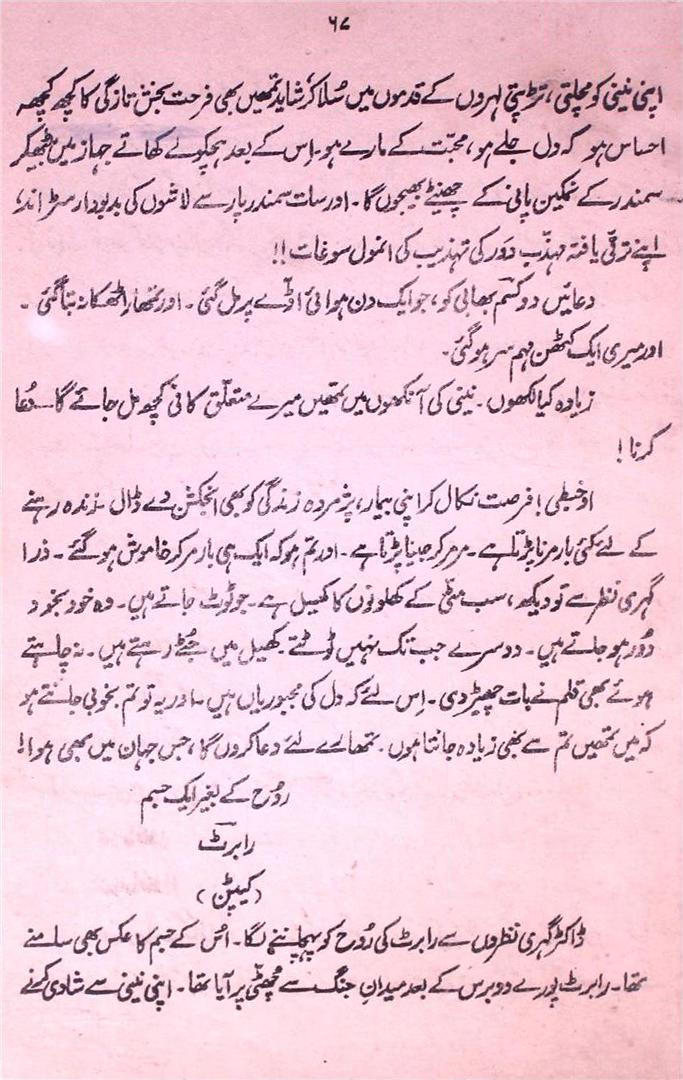 ۶۷
اپنی نینی کو مچلتی، تڑپتی لہروں کے قدموں میں سُلا کر شاید تمھیں بھی فرحت بخش تازگی کا کچھ کچھ
احساس ہو کہ دل جلے ہو، محبّت کے مارے ہو۔ اِس کے بعد ہچکولے کھاتے جہاز میں بیٹھ کر
سمندر کے نمکین پانی کے چھینٹے بھیجوں گا۔ اور سات سمندر پار سے لاشوں کی بدبودار سڑاند،
اپنے ترقی یافتہ مہذّب دَور کی تہذیب کی انمول سوغات!!
دعائیں دو کسم بھابی کو، جو ایک دن ہوائی اڈّے پر مل گئی۔ اور تمھارا ٹھکانہ بتا گئی۔
اور میری ایک کٹھن مہم سر ہو گئی۔
زیادہ کیا لکھوں۔ نینی کی آنکھوں میں تمھیں میرے متعلّق کافی کچھ مل جائے گا۔ دُعا
کرنا!
او خبطی! فرصت نکال کر اپنی بیمار، پژمردہ زندگی کو بھی انجکشن دے ڈال۔ زندہ رہنے
کے لئے کئی بار مرنا پڑتا ہے۔ مر مر کر جینا پڑتا ہے۔ اور تم ہو کہ ایک ہی بار مر کر خاموش ہو گئے۔ ذرا
گہری نظر سے تو دیکھ، سب مٹّی کے کھلونوں کا کھیل ہے۔ جو ٹوٹ جاتے ہیں۔ وہ خود بخود
دُور ہو جاتے ہیں۔ دوسرے جب تک نہیں ٹوٹتے۔ کھیل میں جُٹے رہتے ہیں۔ نہ چاہتے
ہوئے بھی قلم نے بات چھیڑ دی۔ اِس لئے کہ دل کی مجبوریاں ہیں۔ اور یہ تو تم بخوبی جانتے ہو
کہ میں تمھیں تم سے بھی زیادہ جانتا ہوں۔ تمھارے لئے دعا کروں گا، جس جہان میں بھی ہوا!!
رُوح کے بغیر ایک جسم
رابرٹ
(کیپٹن)
ڈاکٹر گہری نظروں سے رابرٹ کی رُوح کو پہچاننے لگا۔ اُس کے جسم کا عکس بھی سامنے
تھا۔ رابرٹ پورے دو برس کے بعد میدانِ جنگ سے چُھٹّی پر آیا تھا۔ اپنی نینی سے شادی کرنے